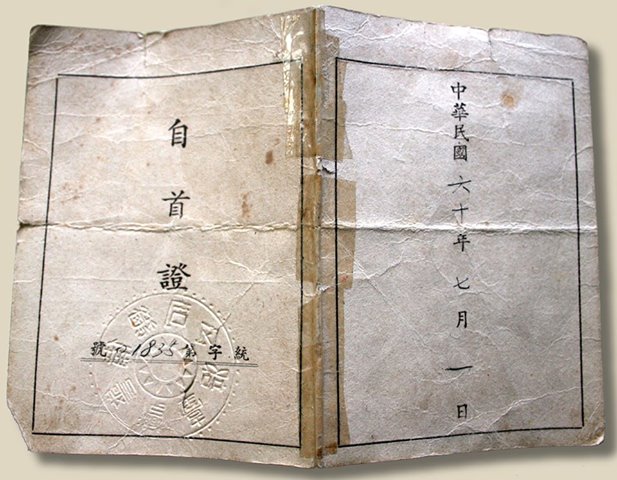 自首證
統字第1835號
中華民國六十年七月一日